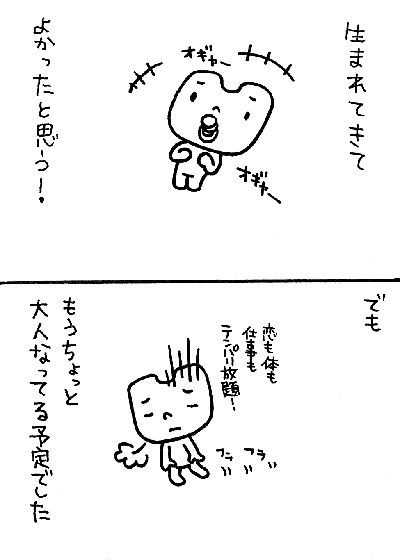 生まれてきて
オギャー
オギャー
よかったと思うー！
でも
恋も体も
仕事も
テンパリ放題ー
フラフラ
もうちょっと
大人なってる予定でした